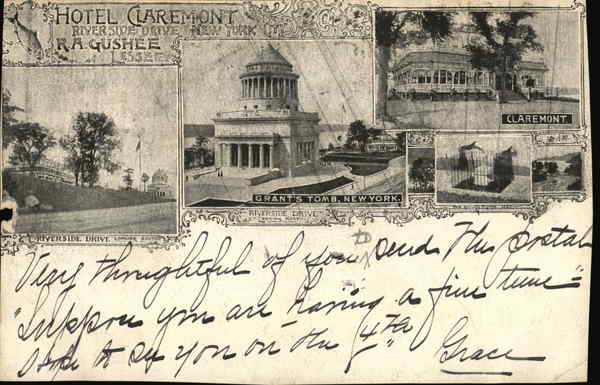 HOTEL CLAREMONT
RIVERSIDE DRIVE, NEW YORK CITY
R.A. GUSHEE
CLAREMONT
GRANT'S TOMB, NEW YORK.
RIVERSIDE DRIVE
RIVERSIDE DRIVE LOOKING SOUTH
Very thoughtful of you to send the postal
Suppose you are having a fine time =
Hope to see you on the 4th
Grace